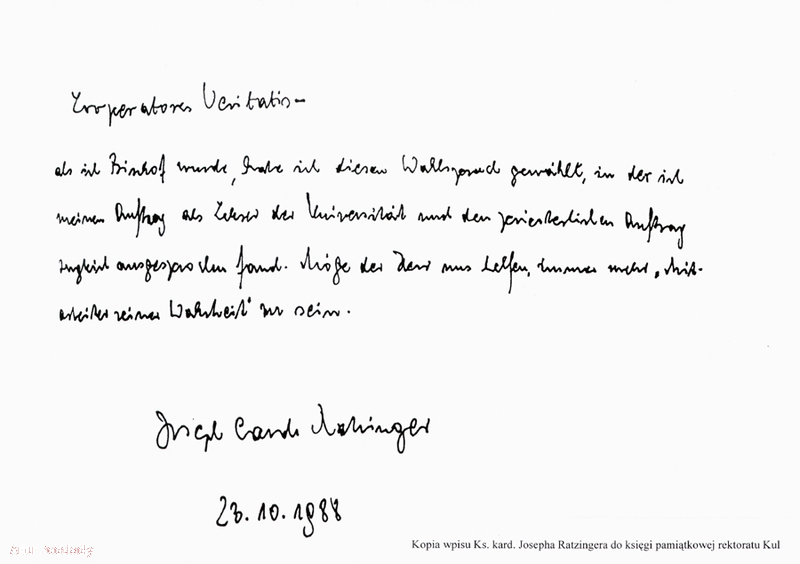 Cooperatores Veritatis –
als ich Bischof wurde, habe ich diesen Wahlspruch gewählt, in der ich
meinen Auftrag als Lehrer der Universität und den priesterlichen Auftrag
zugleich ausgesprochen fand. Möge der Herr uns helfen, immer mehr „Mit-
arbeiter seiner Wahrheit" zu sein.
Joseph Card. Ratzinger
23.10.1988
Kopia wpisu Ks. kard. Josepha Ratzingera do księgi pamiątkowej rektoratu Kul